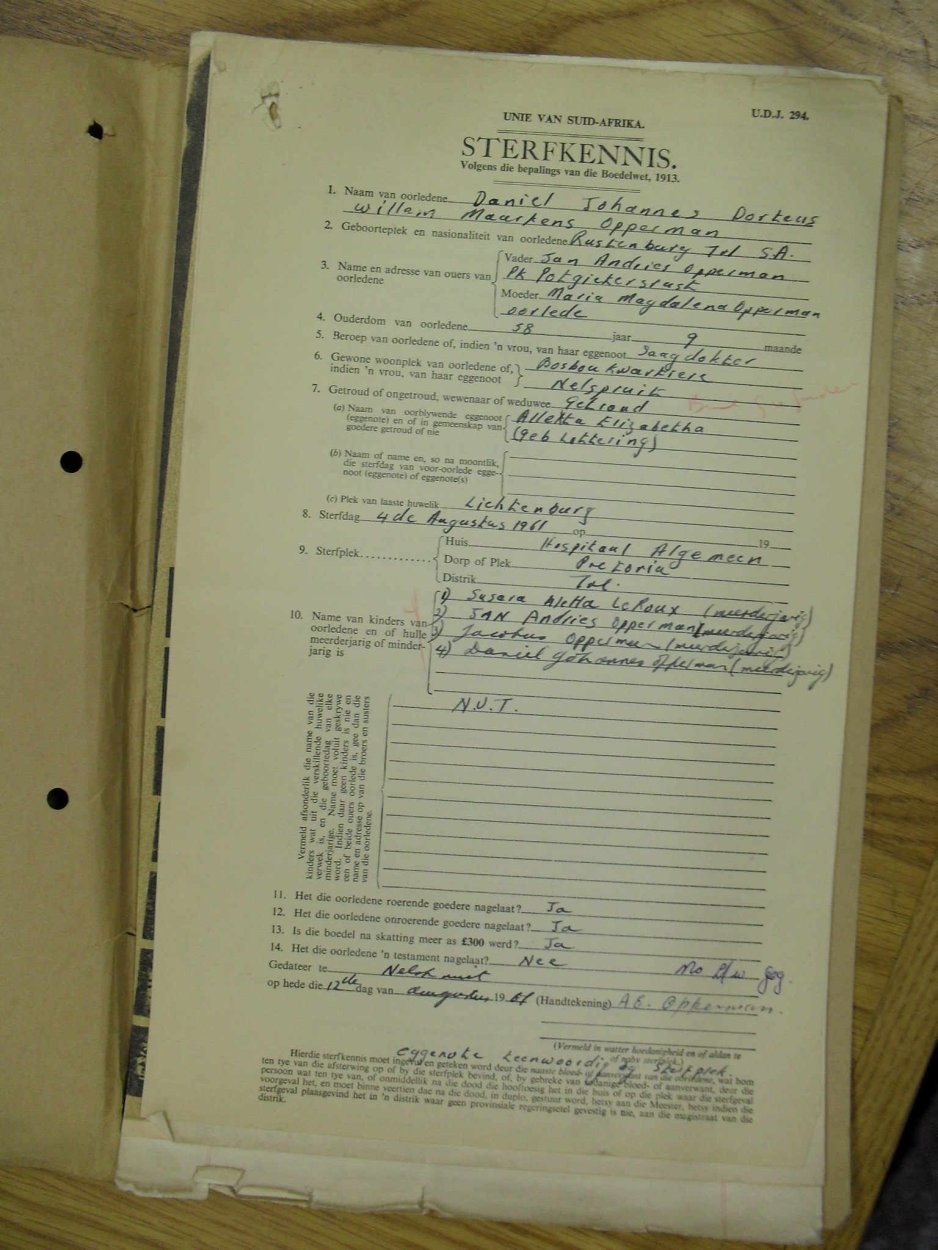 U.D.J. 294.
UNIE VAN SUID-AFRIKA.
STERFKENNIS.
Volgens die bepalings van die Boedelwet, 1913.
1. Naam van oorledene Daniel Johannes Dorteus
Willem Maartens Opperman
2. Geboorteplek en nasionaliteit van oorledene Rustenburg Tvl S.A.
3. Name en adresse van ouers van oorledene
Vader Jan Andries Opperman
PK Potgietersrust
Moeder Maria Magdalena Opperman
oorlede
4. Ouderdom van oorledene 58 jaar 9 maande
5. Beroep van oorledene of, indien 'n vrou, van haar eggenoot Saagdokter
6. Gewone woonplek van oorledene of, indien 'n vrou, van haar eggenoot
Bosbou Kwartiere
Nelspruit
7. Getroud of ongetroud, wewenaar of weduwee Getroud
(a) Naam van oorblywende eggenoot (eggenote) en of in gemeenskap van goedere getroud of nie
Aletta Elizabetha
(Geb Lottering)
(b) Naam of name en, so na moontlik, die sterfdag van voor-oorlede eggenoot (eggenote) of eggenote(s)
(c) Plek van laaste huwelik Lichtenburg
8. Sterfdag 4de Augustus 1961 op 19
9. Sterfplek
Huis Hospitaal Algemeen
Dorp of Plek Pretoria
Distrik Tvl.
10. Name van kinders van oorledene en of hulle meerderjarig of minderjarig is
1) Susara Aletta Le Roux (meerderjarig)
2) JAN Andries Opperman (meerderjarig)
3) Jacobus Opperman (meerderjarig)
4) Daniel Johannes Opperman (meerderjarig)
Vermeld afsonderlik die name van die
kinders wat uit die verskillende huwelike
verwek is, en die geboortedag van elke
minderjarige. Name moet voluit geskrywe
word. Indien daar geen kinders is nie en
een of beide ouers oorlede is, gee dan die
name en adresse op van die broers en susters
van die oorledene.
N.V.T.
11. Het die oorledene roerende goedere nagelaat? Ja
12. Het die oorledene onroerende goedere nagelaat? Ja
13. Is die boedel na skatting meer as £300 werd? Ja
14. Het die oorledene 'n testament nagelaat? Nee
Gedateer te Nelspruit
op hede die 12de dag van Augustus 1961 (Handtekening) A E. Opperman.
(Vermeld in watter hoedanigheid en of aldan te
of naby sterfplek.)
eggenote teenwoordig by sterfplek.
Hierdie sterfkennis moet ingevul en geteken word deur die naaste bloed- of aanverwant van die oorledene, wat hom
ten tye van die afsterwing op of by die sterfplek bevind, of, by gebreke van sodanige bloed- of aanverwant, deur die
persoon wat ten tye van, of onmiddellik na die dood die hooftoesig het in die huis of op die plek waar die sterfgeval
voorgeval het, en moet binne veertien dae na die dood, in duplo, gestuur word, hetsy aan die Meester, hetsy indien die
sterfgeval plaasgevind het in 'n distrik waar geen provinsiale regeringsetel gevestig is nie, aan die magistraat van die
distrik.